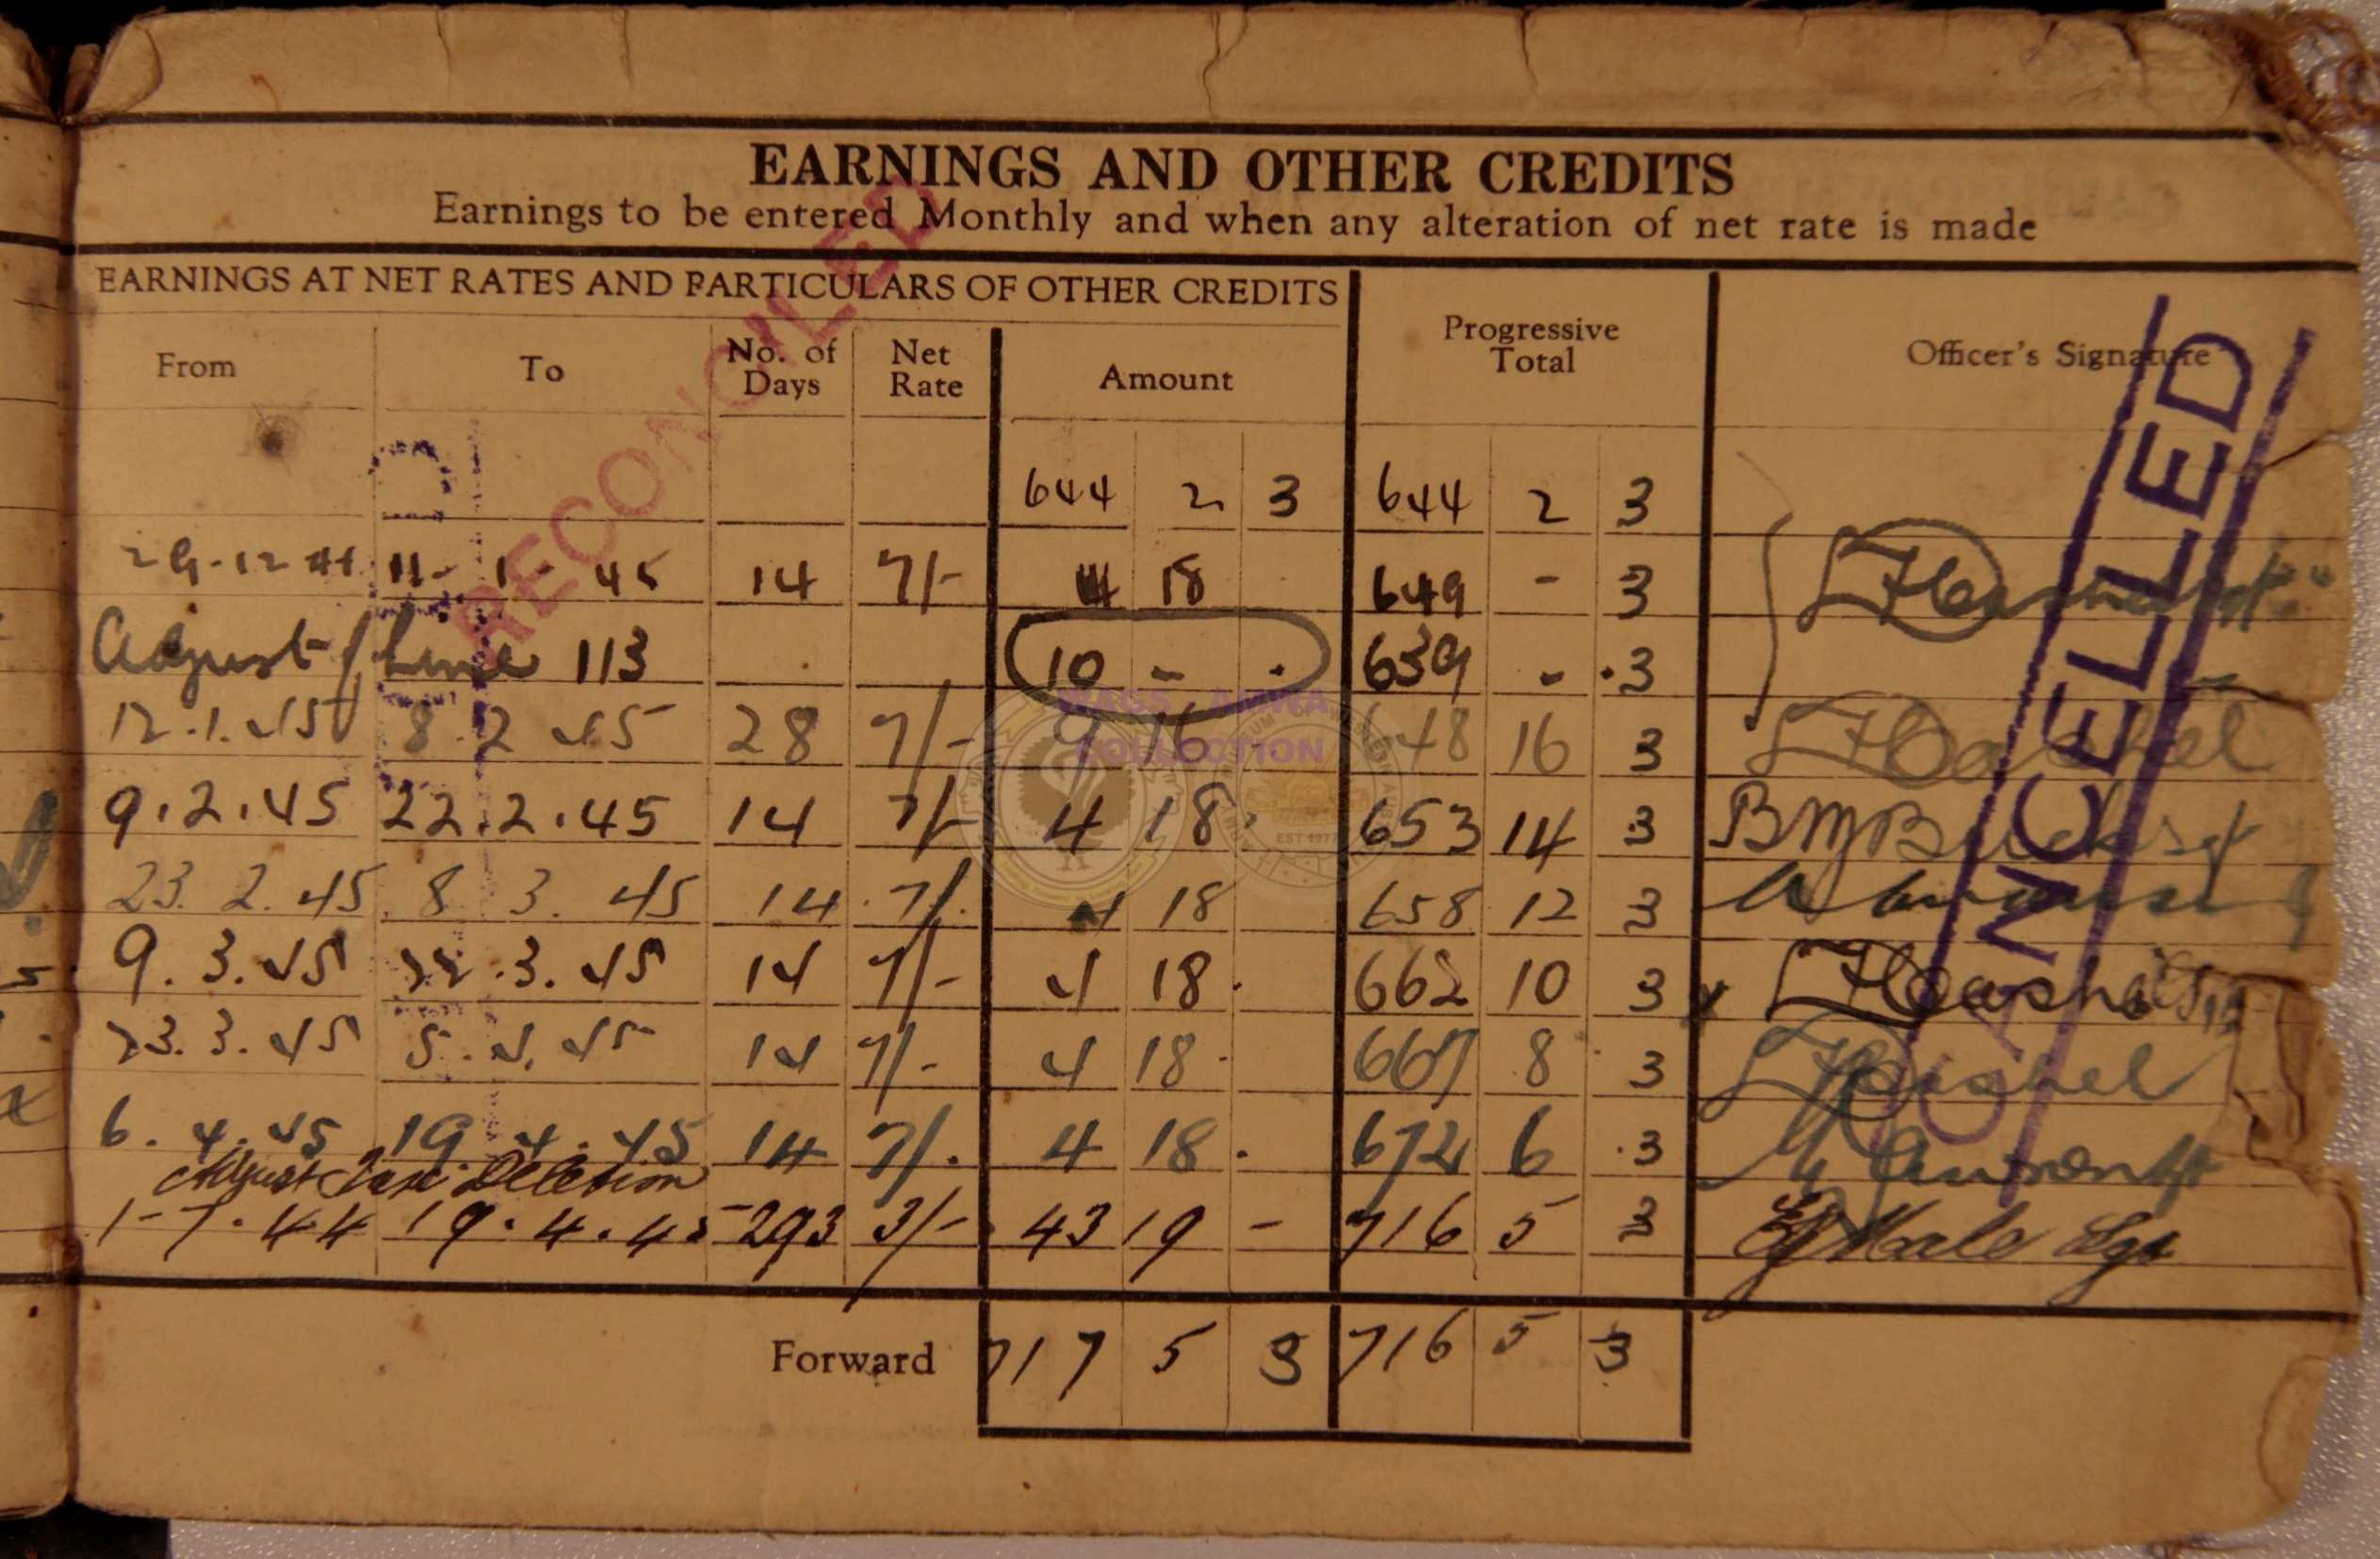 EARNINGS AND OTHER CREDITS
Earnings to be entered Monthly and when any alteration of net rate is made
EARNINGS AT NET RATES AND PARTICULARS OF OTHER CREDITS
From To No. of Days Net Rate Amount Progressive Total Officer's Signature
RECONCILED
CANCELLED
644 2 3 644 2 3
29-12-44 11-1-45 14 7/- 4 18 649 - 3
Adjust line 113 10 - . 639 - .3
12.1.45 8.2.45 28 7/- 9 16 648 16 3
WAGS AMWA
COLLECTION
EST 1977
9.2.45 22.2.45 14 7/- 4 18. 653 14 3
23.2.45 8.3.45 14 7/. 4 18 658 12 3
9.3.45 22.3.45 14 7/- 4 18. 662 10 3
23.3.45 5.4.45 14 7/- 4 18. 667 8 3
6.4.45 19.4.45 14 7/. 4 18. 672 6 .3
Adjust Taxi Deletion
1-7.44 19.4.45 293 3/- 43 19 - 716 5 3 Hale Sgt
Forward 717 5 3 716 5 3